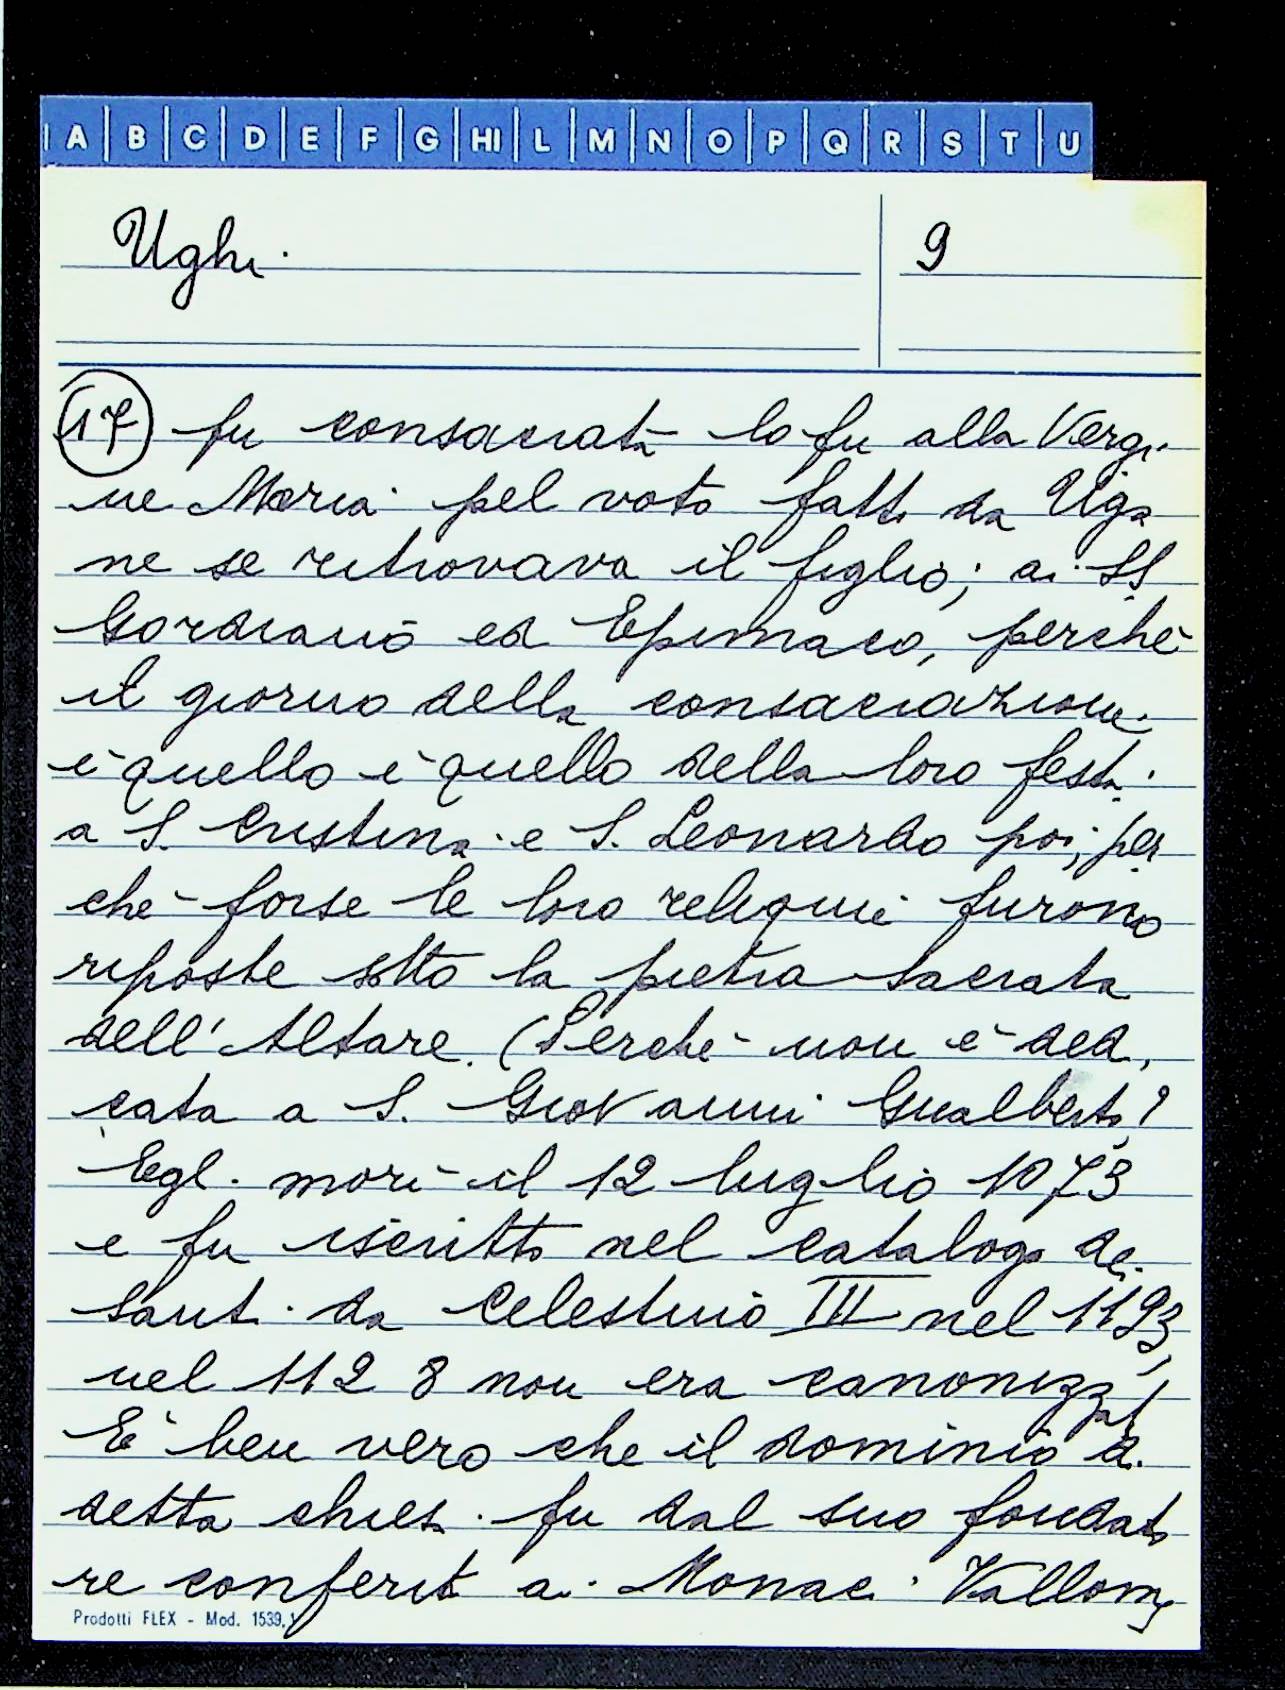 A B C D E F G HI L M N O P Q R S T U
Ughi.
9
17 fu consacrata lo fu alla Vergi
ne Maria pel voto fatto da Ugo
ne se ritrovava il figlio; ai SS
Gordiano ed Epimaco, perchè
il giorno della consacrazione
è quello è quello della loro festa.
a S. Cristina e S. Leonardo poi, per
chè forse le loro reliquie furono
riposte sotto la pietra sacrata
dell'Altare. (Perchè non è dedi
cata a S. Giovanni Gualberto?
Egli morì il 12 luglio 1073
e fu iscritto nel catalogo dei
Santi da Celestino III nel 1193,
nel 1128 non era canonizzat
È ben vero che il dominio di
detta chiesa fu dal suo fondato
re conferito ai Monaci Vallom
Prodotti FLEX - Mod. 1539,1